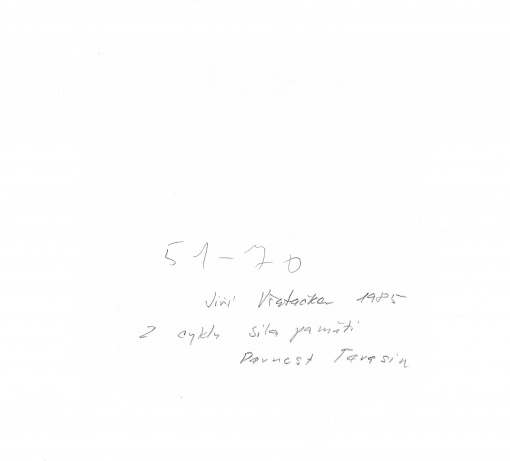 51-70
Jiří 1985
Z cyklu síla paměti
Tarasin